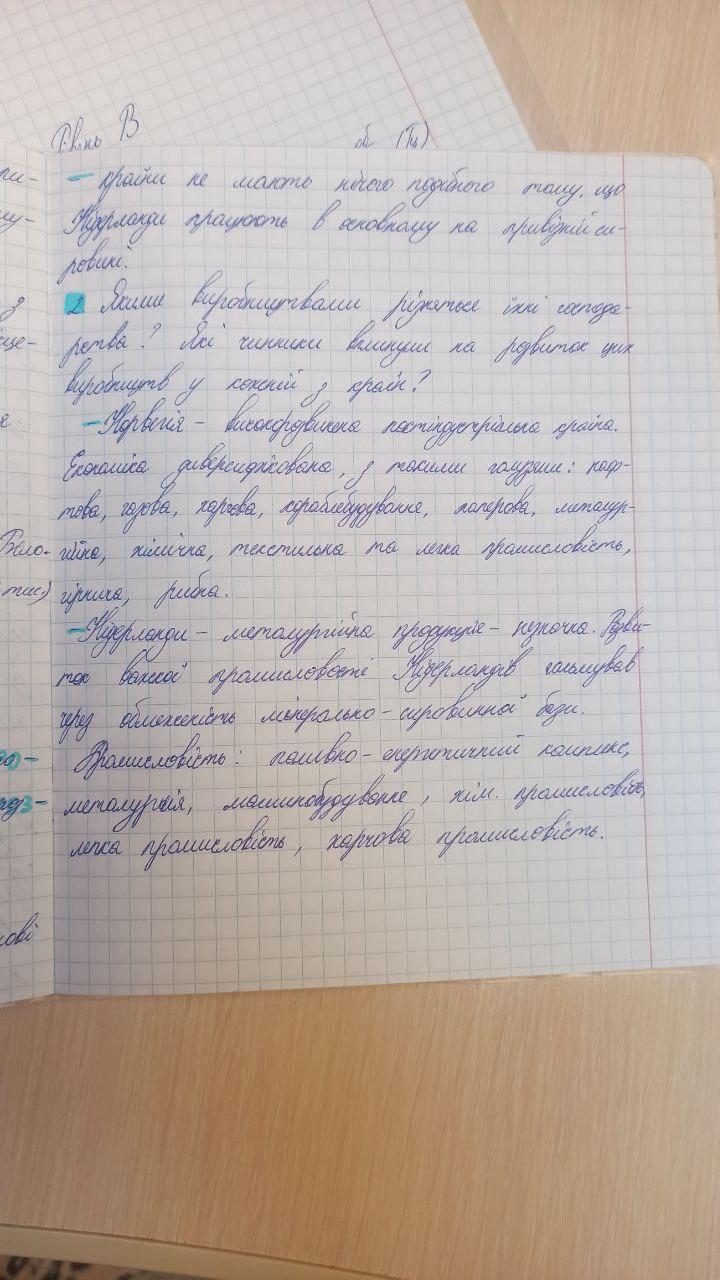 Рівень В
– країни не мають нічого подібного тому, що
Нідерланди працюють в основному на привізній си-
ровині.
2 Якими виробництвами різняться їхні господа-
рства? Які чинники вплинули на розвиток цих
виробництв у кожній з країн?
– Норвегія – високорозвинена постіндустріальна країна.
Економіка диверсифікована, з такими галузями: наф-
това, газова, харчова, кораблебудування, паперова, металур-
гійна, хімічна, текстильна та легка промисловість,
гірнича, рибна.
– Нідерланди – металургійна продукція – незначна. Розви-
ток важкої промисловості Нідерландів гальмував
через обмеженість мінерально-сировинної бази.
Промисловість: паливно-енергетичний комплекс,
металургія, машинобудування, хім. промисловість,
легка промисловість, харчова промисловість.